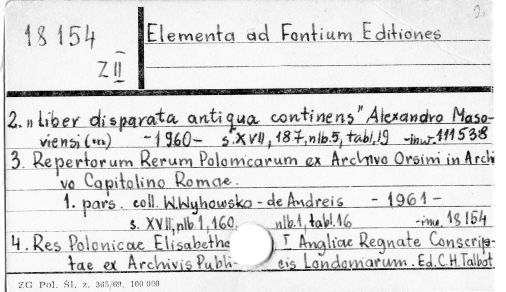 18154
Z II
Elementa ad Fontium Editiones
2. „Liber disparata antiqua continens" Alexandro Maso-
viensi (...) -1960- s. XVII, 187, nlb. 5, tabl. 19 -inw. 111538
3. Repertorum Rerum Polonicarum ex Archivo Orsini in Archi
vo Capitolino Romae.
1. pars. coll. W. Wyhowska - de Andreis - 1961 -
s. XVII, nlb. 1, 160, nlb. 1, tabl. 16 -inw. 18154
4. Res Polonicae Elisabethe I Angliae Regnate Conscrip-
tae ex Archivis Publi- cis Londoniarum. Ed. C.H. Talbot
ZG Pol. Śl. z. 365/69. 100 000